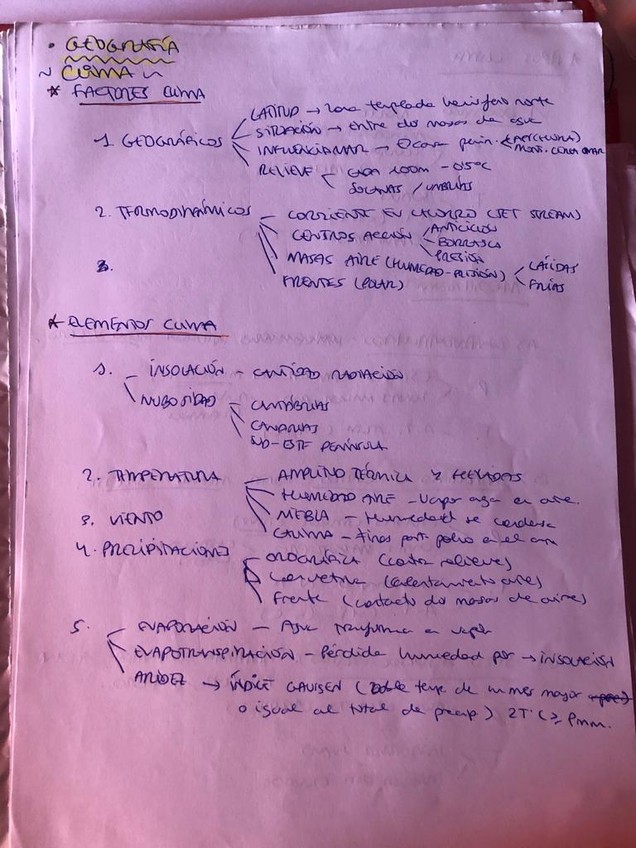 • GEOGRAFÍA
~ CLIMA ~
* FACTORES CLIMA
LATITUD → Zona templada hemisferio norte
SITUACIÓN → Entre dos masas de agua
1. GEOGRÁFICOS
INFLUENCIA MAR →
RELIEVE
CADA 100m - 0'5ºC
SOLANAS / UMBRÍAS
2. TERMODINÁMICOS
CORRIENTE EN CHORRO (JET STREAM)
CENTROS ACCIÓN
ANTICICLÓN
BORRASCA
PRESIÓN
MASAS AIRE (HUMEDAD-PRESIÓN)
CÁLIDAS
FRÍAS
FRENTES (POLAR)
3.
* ELEMENTOS CLIMA
1. - INSOLACIÓN - CANTIDAD RADIACIÓN
NUBOSIDAD
CANTABRIAS
CANARIAS
NO-ESTE PENÍNSULA
2. TEMPERATURA
AMPLITUD TÉRMICA Y HELADAS
HUMEDAD AIRE - Vapor agua en aire.
3. VIENTO
NIEBLA - Humedad se condensa
CALIMA - Finas part. polvo en el aire
4. PRECIPITACIONES
OROGRÁFICA (contra relieves)
Convectiva (calentamiento aire)
Frente (contacto dos masas de aire)
5.
EVAPORACIÓN - Agua transforma en vapor
EVAPOTRANSPIRACIÓN - Pérdida humedad por → INSOLACIÓN
ARIDEZ → ÍNDICE GAUSSEN (Doble temp. de un mes mayor
o igual al total de precip.) 2TºC ≥ Pmm.